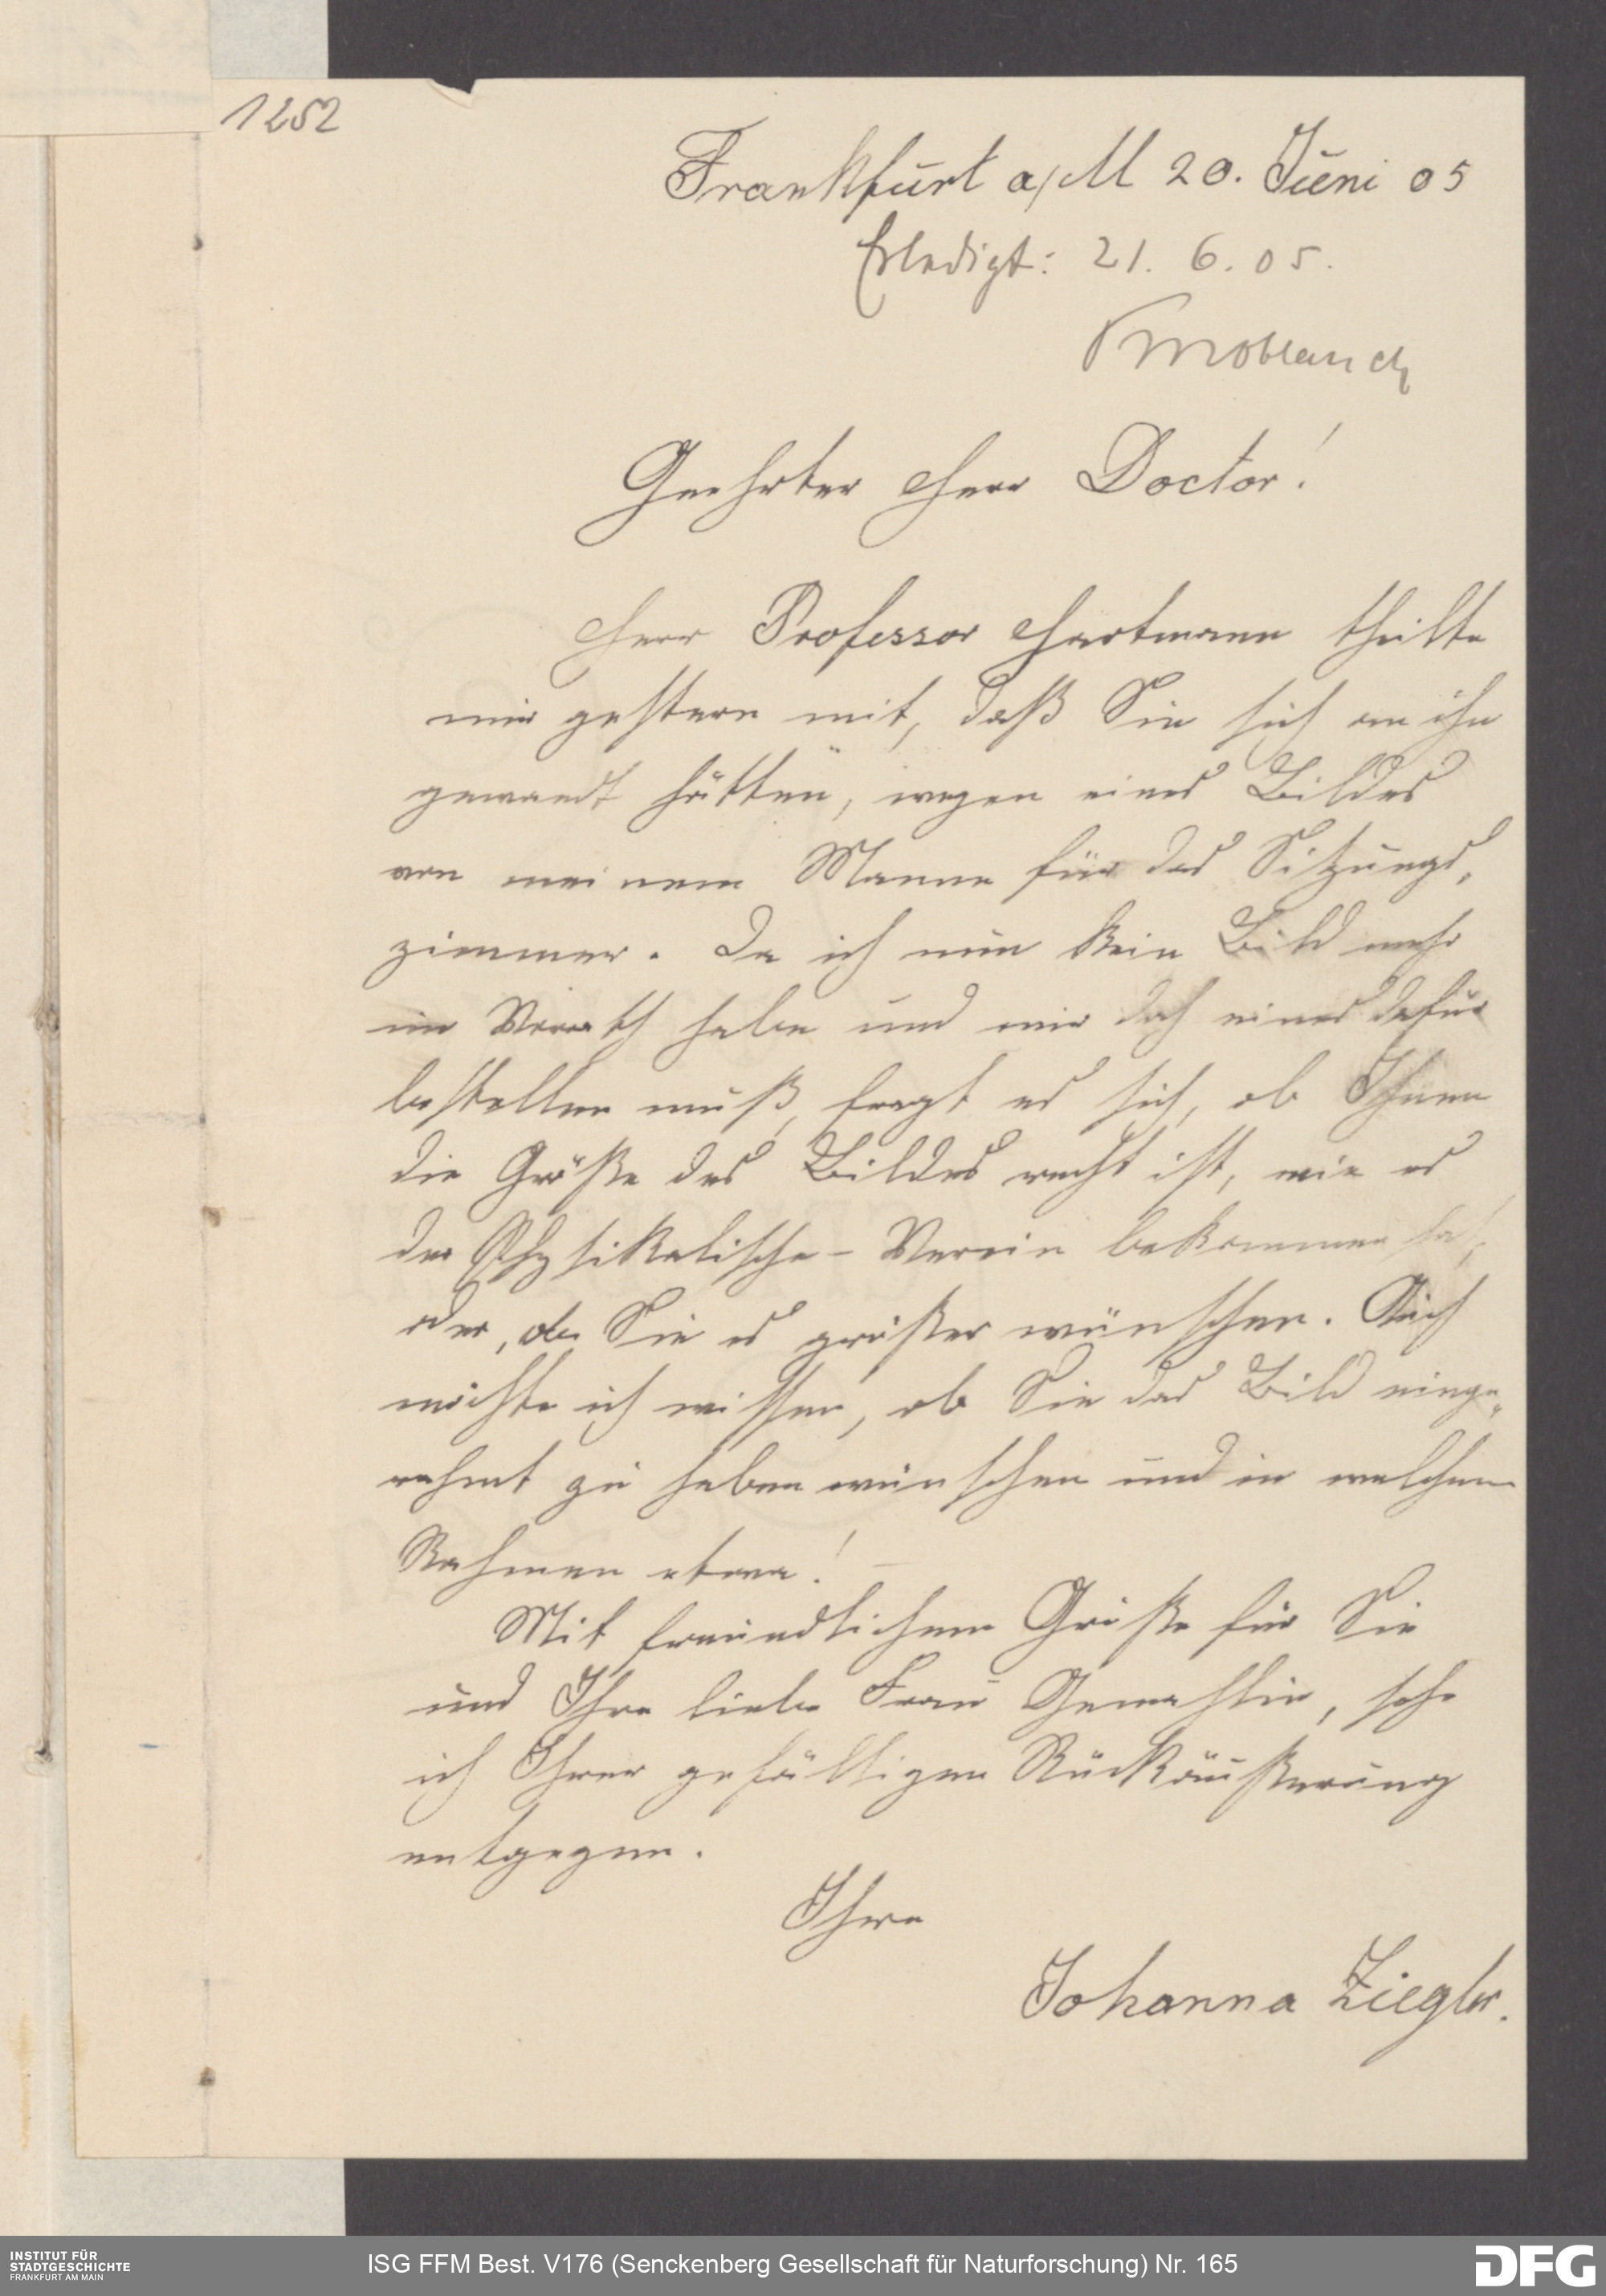 1252
Frankfurt a/M 20. Juni 05
Erledigt: 21. 6. 05.
Knoblauch
Geehrter Herr Doctor!
Herr Professor Hartmann theilte
mir gestern mit, daß Sie sich an ihn
gewandt hätten, wegen eines Bildes
von meinem Manne für das Sitzungs„
zimmer. Da ich nun kein Bild mehr
im Vorrath habe und mir doch eines dafür
bestellen muß, fragt es sich, ob Ihnen
die Größe des Bildes recht ist, wie es
der Physikalische-Verein bekommen hat,
oder, ob Sie es größer wünschen. Auch
möchte ich wissen, ob Sie das Bild einge„
rahmt zu haben wünschen und in welchem
Rahmen etwa! –
Mit freundlichem Gruße für Sie
und Ihre liebe Frau Gemahlin, sehe
ich Ihrer gefälligen Rückäußerung
entgegen.
Ihre
Johanna Ziegler.
INSTITUT FÜR
STADTGESCHICHTE
FRANKFURT AM MAIN
ISG FFM Best. V176 (Senckenberg Gesellschaft für Naturforschung) Nr. 165
DFG